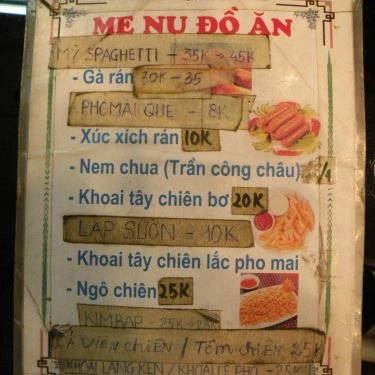 ME NU ĐỒ ĂN
MỲ SPAGHETTI - 35K → 45K
- Gà rán 30K - 35
PHOMAI QUE - 8K
- Xúc xích rán 10K
- Nem chua (Trần công châu)
- Khoai tây chiên bơ 20K
LẠP SƯỜN - 10K
- Khoai tây chiên lắc pho mai
- Ngô chiên 25K
KIMBAP - 25K
CÁ VIÊN CHIÊN / TÔM CHIÊN 25K
KHOAI LANG KÉN / KHOAI LỆ PHỐ - 25K